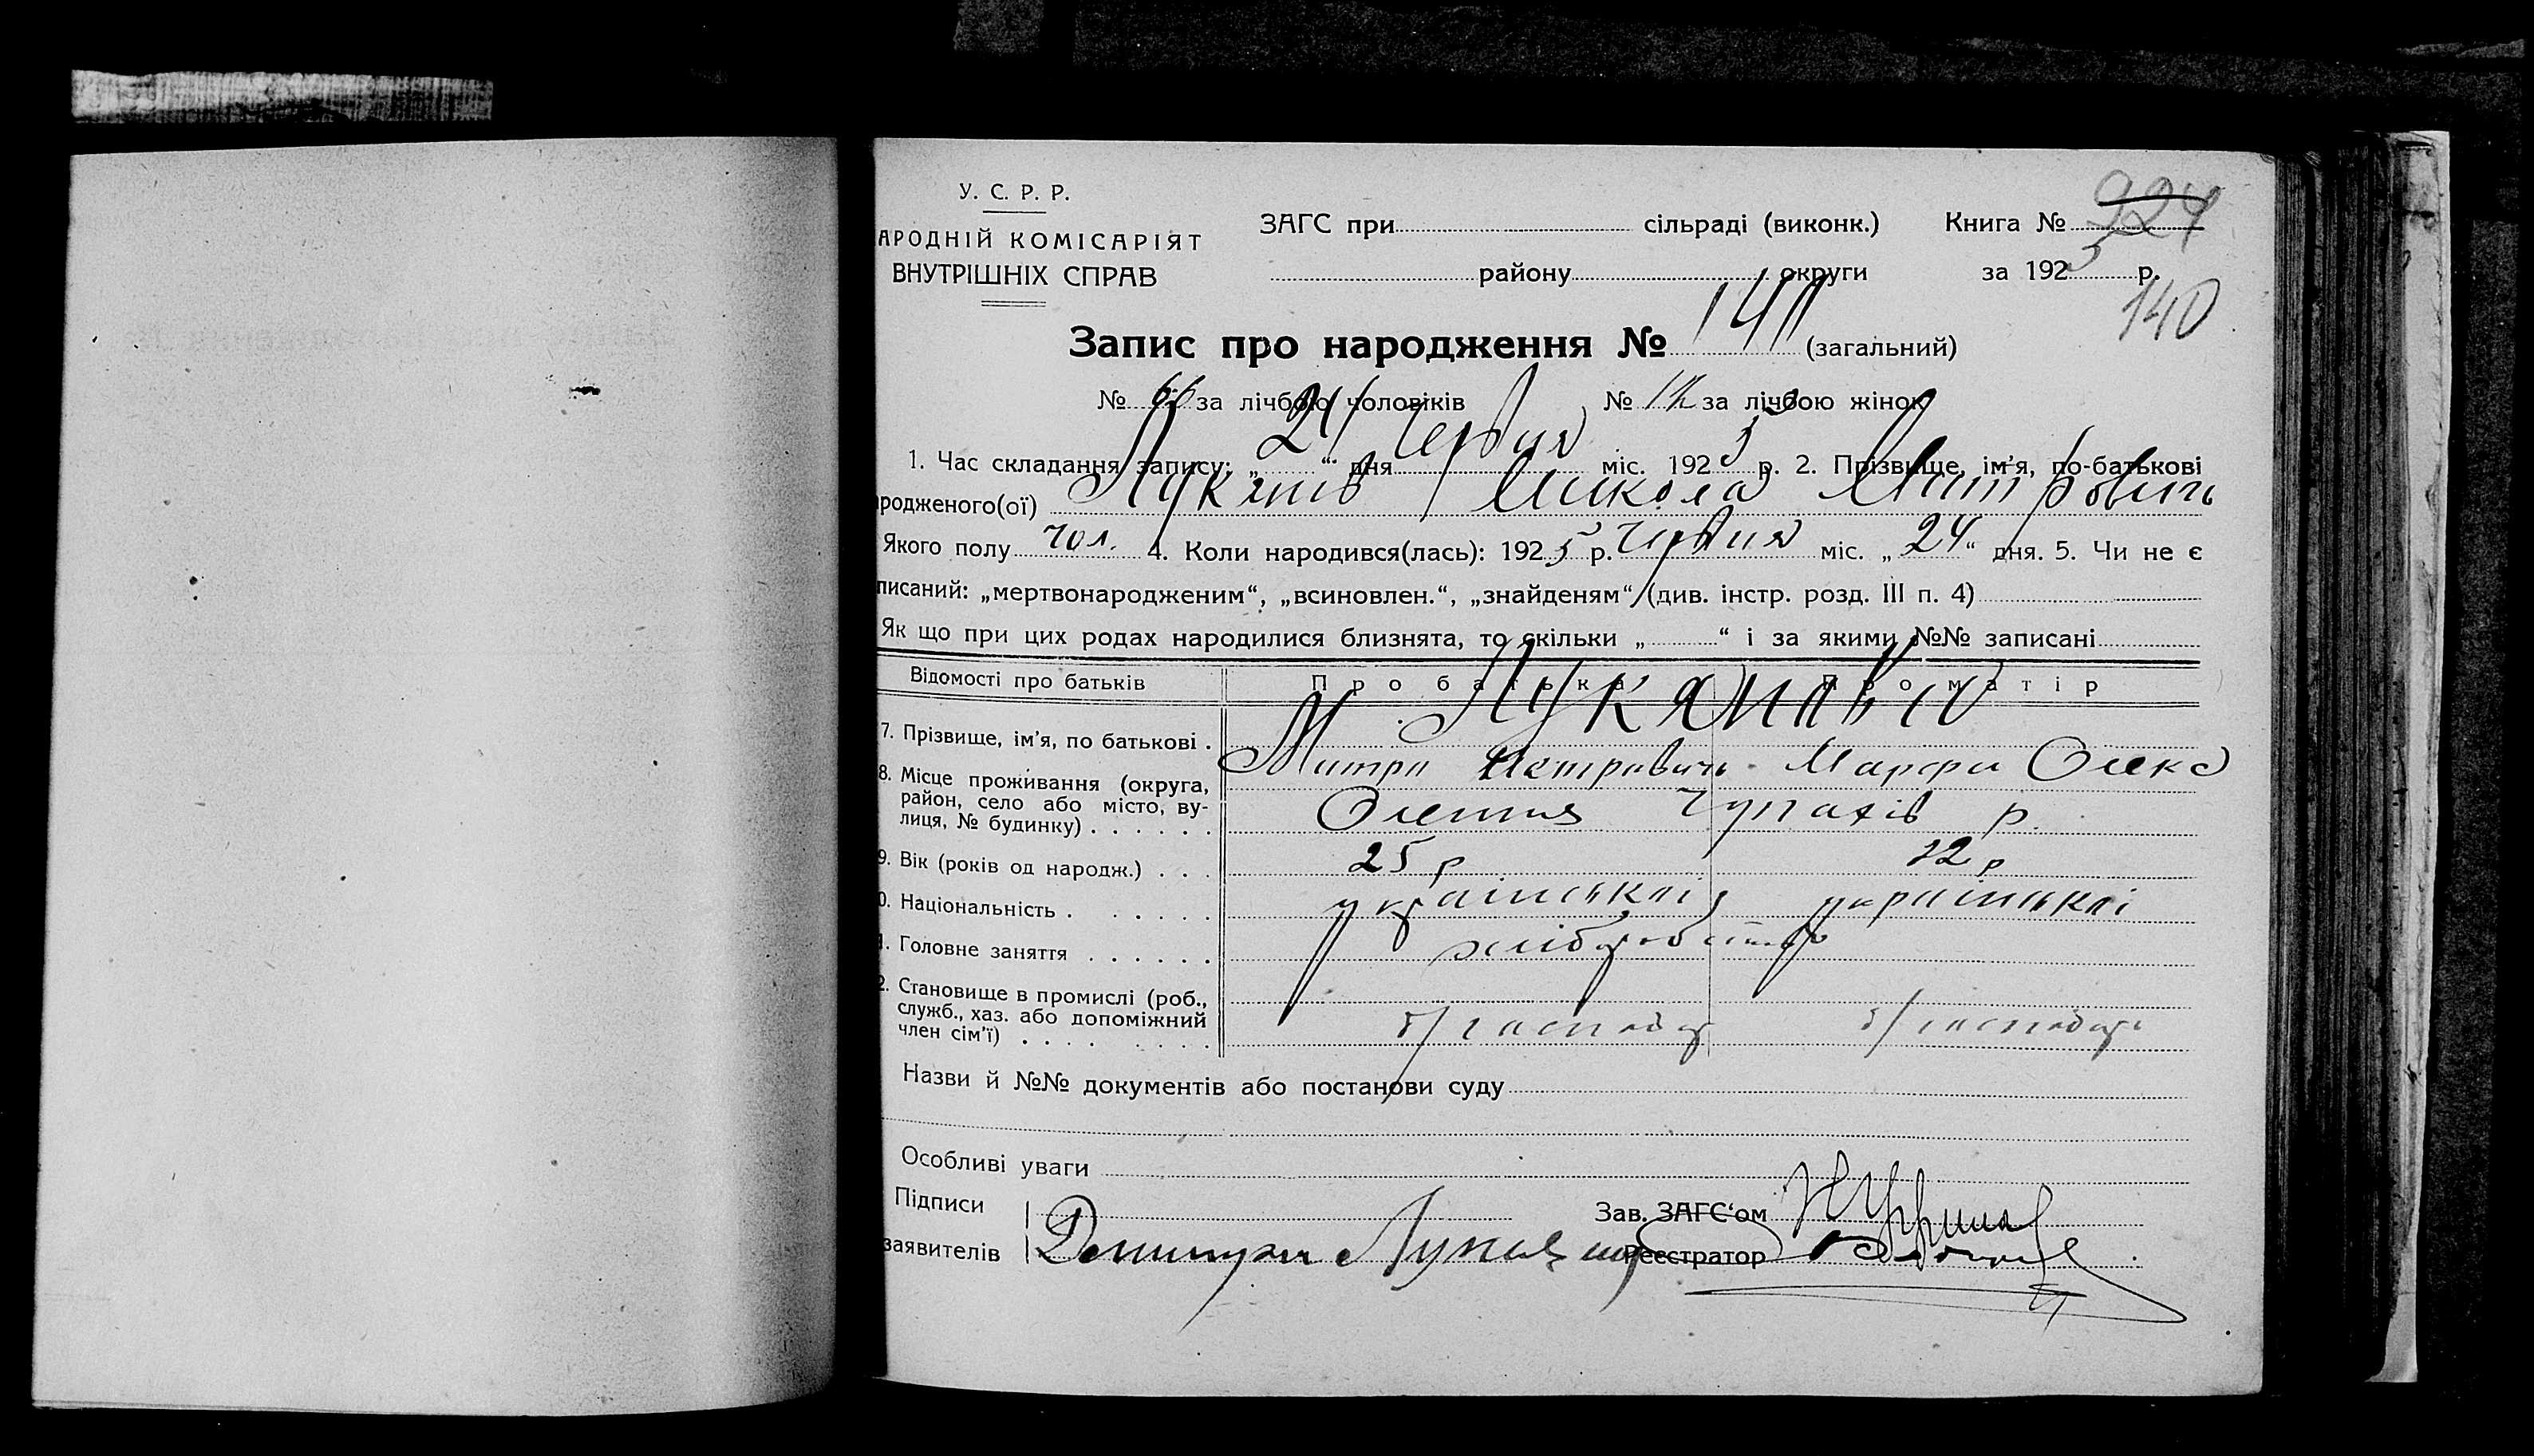 У. С. Р. Р.
АРОДНІЙ КОМІСАРІЯТ
ВНУТРІШНІХ СПРАВ
ЗАГС при сільраді (виконк.) Книга № 224
району округи за 1925 р.
140
Запис про народження № 140 (загальний)
№ 66 за лічбою чоловіків № за лічбою жінок
1. Час складання запису: „24“ дня червня міс. 1925 р. 2. Прізвище, ім'я, по-батькові
родженого(ої) Микола Митрович
Якого полу чол. 4. Коли народився(лась): 1925 р. червня міс. „24“ дня. 5. Чи не є
писаний: „мертвонародженим“, „всиновлен.“, „знайденям“ (див. інстр. розд. III п. 4)
Як що при цих родах народилися близнята, то скільки „ “ і за якими №№ записані
Відомості про батьків Про батька Про матір
7. Прізвище, ім'я, по батькові .
Митро Петрович Марфа Олекс
8. Місце проживання (округа,
район, село або місто, ву-
лиця, № будинку) . . . . . . Олешня Чупахів р.
9. Вік (років од народж.) . . . 25 р р
0. Національність . . . . . . українськ українськ
1. Головне заняття . . . . . . хліборобство
2. Становище в промислі (роб.,
служб., хаз. або допоміжний
член сім'ї) . . . . . . . . б/господар б/господар
Назви й №№ документів або постанови суду
Особливі уваги
Підписи Зав. ЗАГС'ом
заявителів Реєстратор